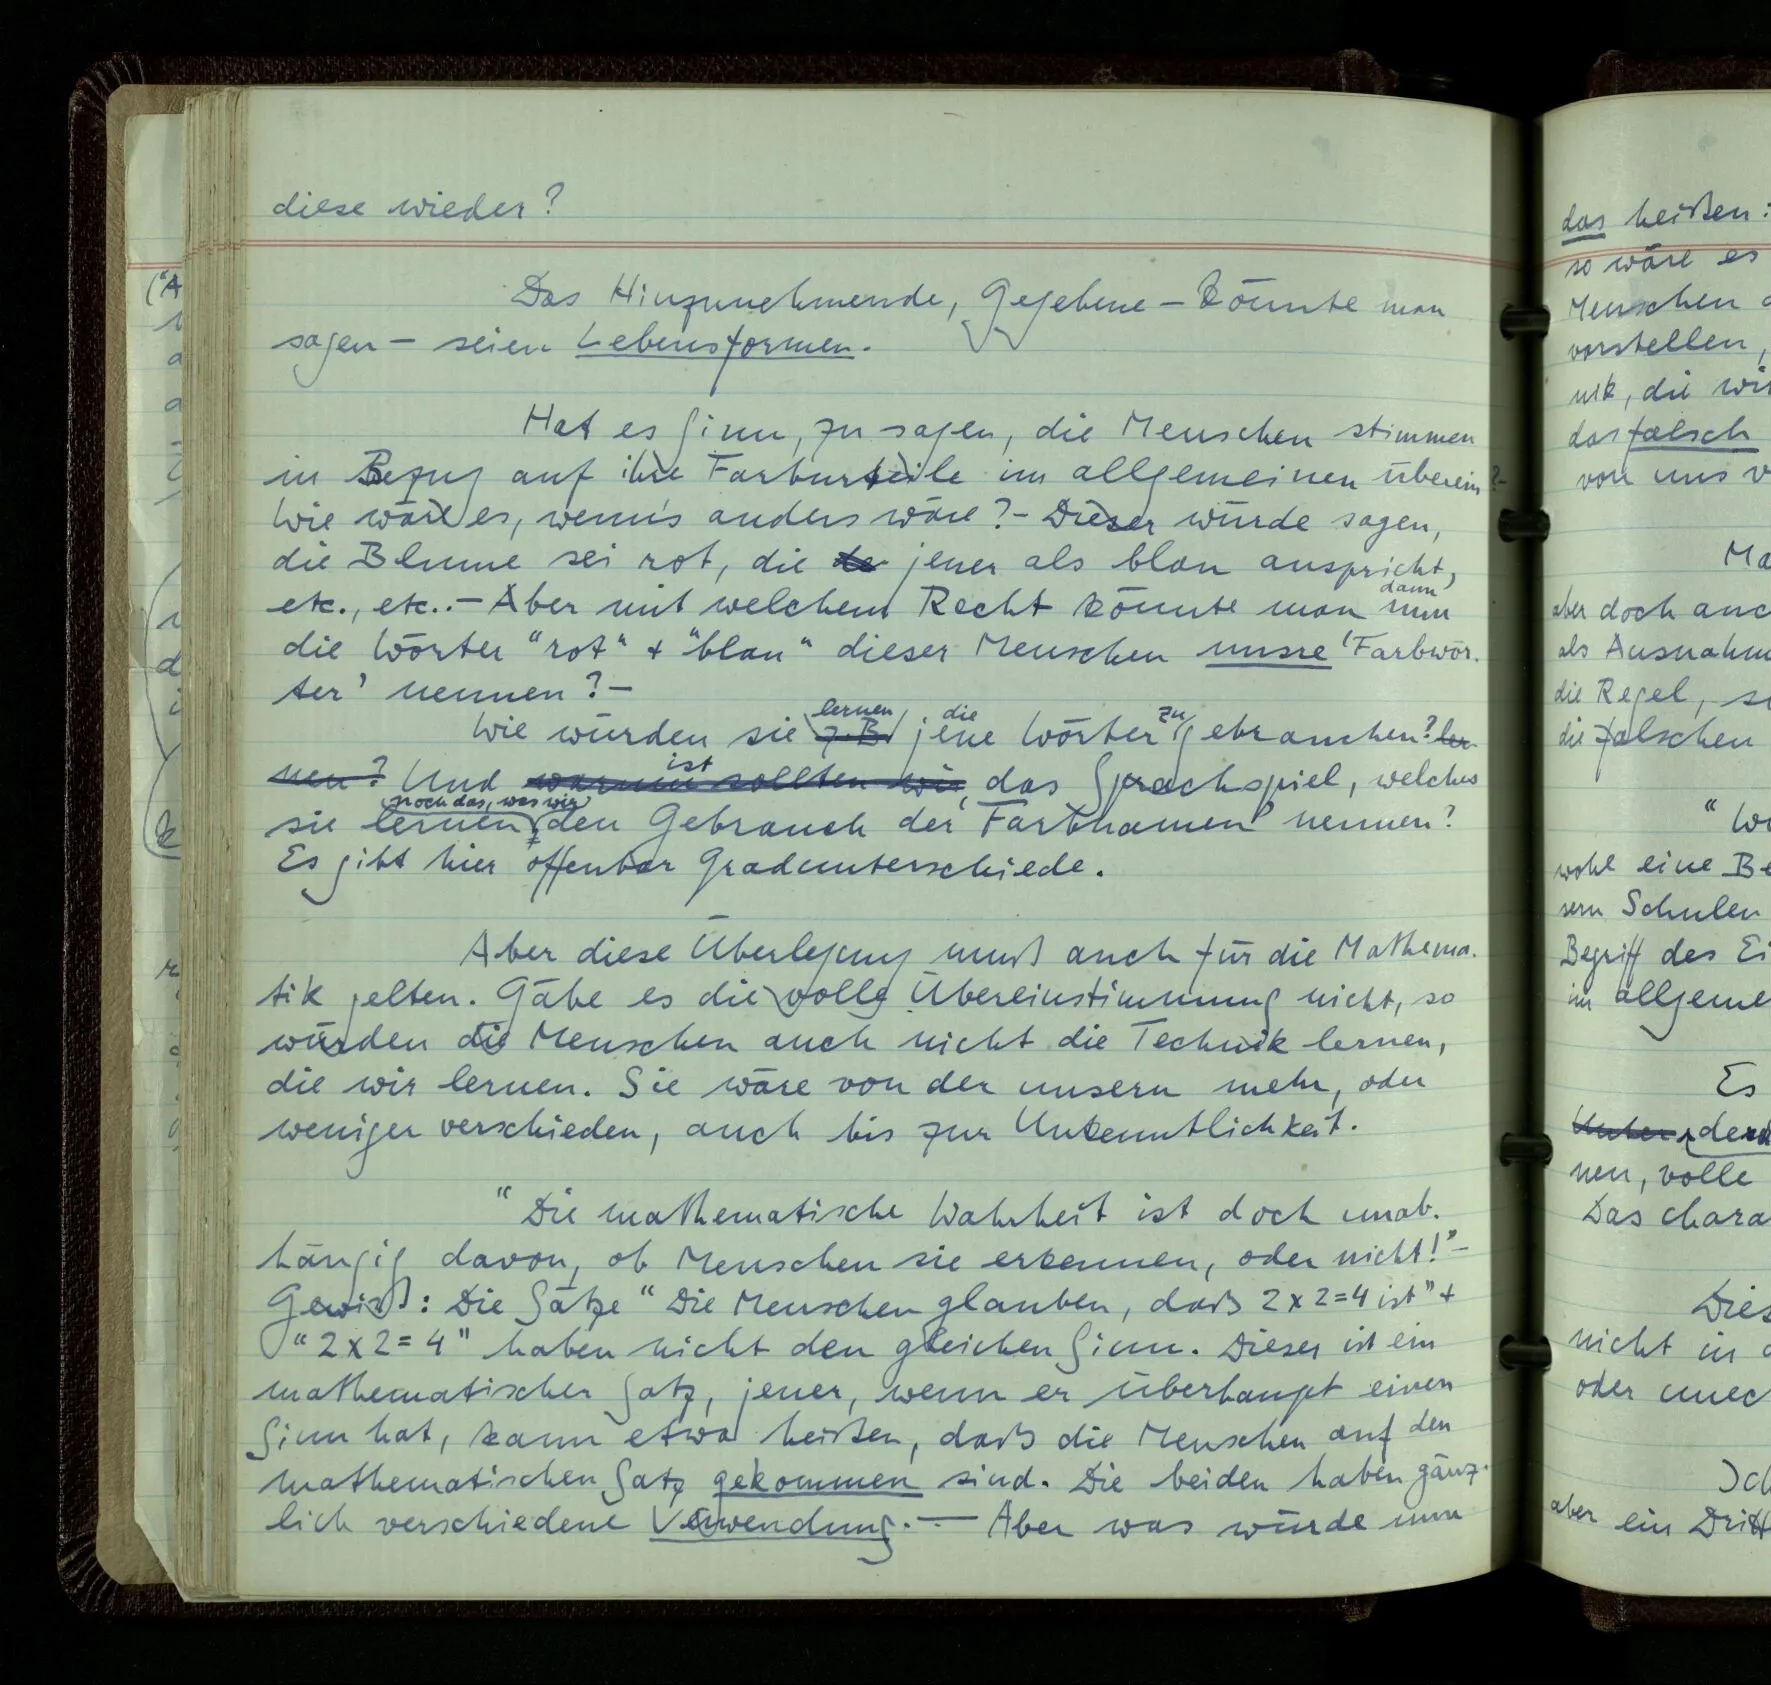 diese wieder?
Das Hinzunehmende, Gegebene – könnte man
sagen – seien Lebensformen.
Hat es Sinn, zu sagen, die Menschen stimmen
in Bezug auf ihre Farburteile im allgemeinen überein?–
Wie wäre es, wenn's anders wäre? – Dieser würde sagen,
die Blume sei rot, die jener als blau anspricht,
dann
etc., etc.. – Aber mit welchem Recht könnte man nun
die Wörter "rot" + "blau" dieser Menschen unsre 'Farbwör-
ter' nennen? –
lernen die zu
Wie würden sie z.B. jene Wörter gebrauchen? ler-
ist
nen? Und warum sollten wir, das Sprachspiel, welches
noch das, was wir
sie lernen, den Gebrauch der 'Farbnamen' nennen?
Es gibt hier offenbar Gradunterschiede.
Aber diese Überlegung muß auch für die Mathema-
tik gelten. Gäbe es die volle Übereinstimmung nicht, so
würden die Menschen auch nicht die Technik lernen,
die wir lernen. Sie wäre von der unsern mehr, oder
weniger verschieden, auch bis zur Unkenntlichkeit.
"Die mathematische Wahrheit ist doch unab-
hängig davon, ob Menschen sie erkennen, oder nicht!" –
Gewiß: Die Sätze "Die Menschen glauben, daß 2 x 2 = 4 ist" +
"2 x 2 = 4" haben nicht den gleichen Sinn. Dieser ist ein
mathematischer Satz, jener, wenn er überhaupt einen
Sinn hat, kann etwa heißen, daß die Menschen auf den
mathematischen Satz gekommen sind. Die beiden haben gänz-
lich verschiedene Verwendung. — Aber was würde nun
das heißen:
so wäre es
Menschen
vorstellen,
nik, die wir
das falsch
von uns
aber doch auch
als Ausnahm
die Regel,
die falschen
wohl eine Be
sern Schulen
Begriff des Ei
im allgeme
Es
Unter
nen, volle
Das chara
Dies
nicht in
oder unec
Ich
aber ein Dritt